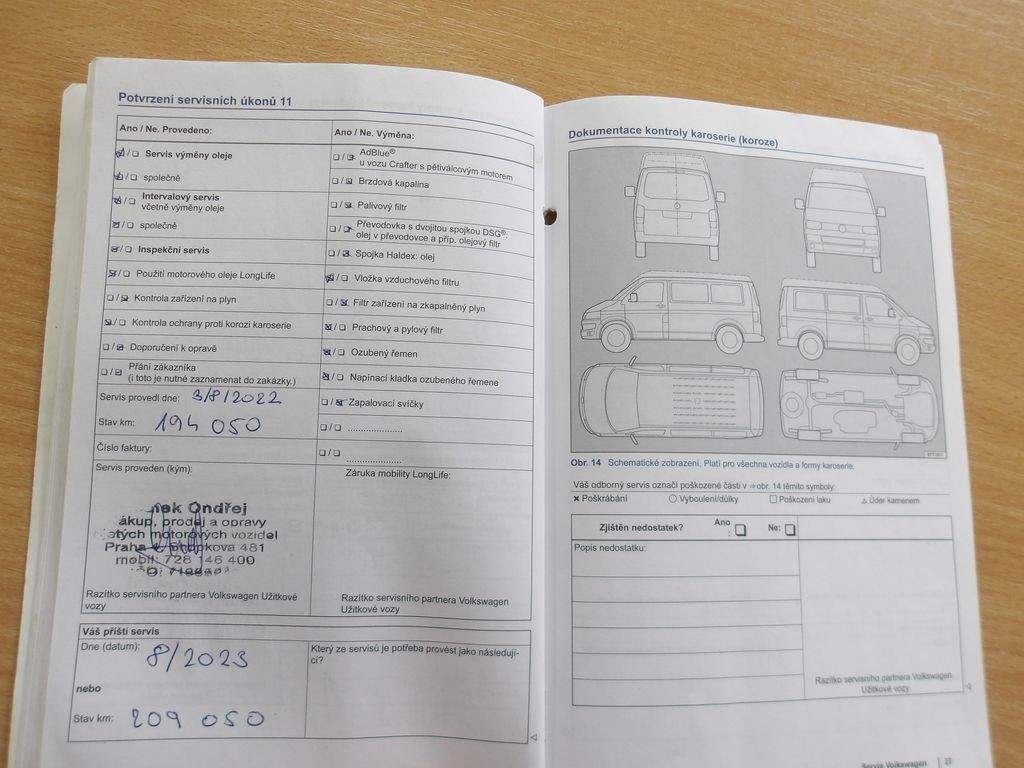 Potvrzení servisních úkonů 11
Ano / Ne. Provedeno:
Servis výměny oleje
společně
Intervalový servis
včetně výměny oleje
společně
Inspekční servis
Použití motorového oleje LongLife
Kontrola zařízení na plyn
Kontrola ochrany proti korozi karoserie
Doporučení k opravě
Přání zákazníka
(i toto je nutné zaznamenat do zakázky.)
Servis provedl dne: 3/8/2022
Stav km: 194 050
Číslo faktury:
Servis proveden (kým):
nek Ondřej
ákup, prodej a opravy
atých motorových vozidel
Praha kova 481
mobil: 728 146 400
Razítko servisního partnera Volkswagen Užitkové
vozy
Ano / Ne. Výměna:
AdBlue®
u vozu Crafter s pětiválcovým motorem
Brzdová kapalina
Palivový filtr
Převodovka s dvojitou spojkou DSG®:
olej v převodovce a příp. olejový filtr
Spojka Haldex: olej
Vložka vzduchového filtru
Filtr zařízení na zkapalněný plyn
Prachový a pylový filtr
Ozubený řemen
Napínací kladka ozubeného řemene
Zapalovací svíčky
Záruka mobility LongLife:
Razítko servisního partnera Volkswagen
Užitkové vozy
Váš příští servis
Dne (datum): 8/2023
nebo
Stav km: 209 050
Který ze servisů je potřeba provést jako následují-
cí?
Dokumentace kontroly karoserie (koroze)
Obr. 14 Schematické zobrazení. Platí pro všechna vozidla a formy karoserie.
Váš odborný servis označí poškozené části v ⇒obr. 14 těmito symboly:
× Poškrábání ○ Vyboulení/důlky □ Poškození laku △ Úder kamenem
Zjištěn nedostatek? Ano : Ne:
Popis nedostatku:
Razítko servisního partnera Volkswagen
Užitkové vozy
Servis Volkswagen | 27